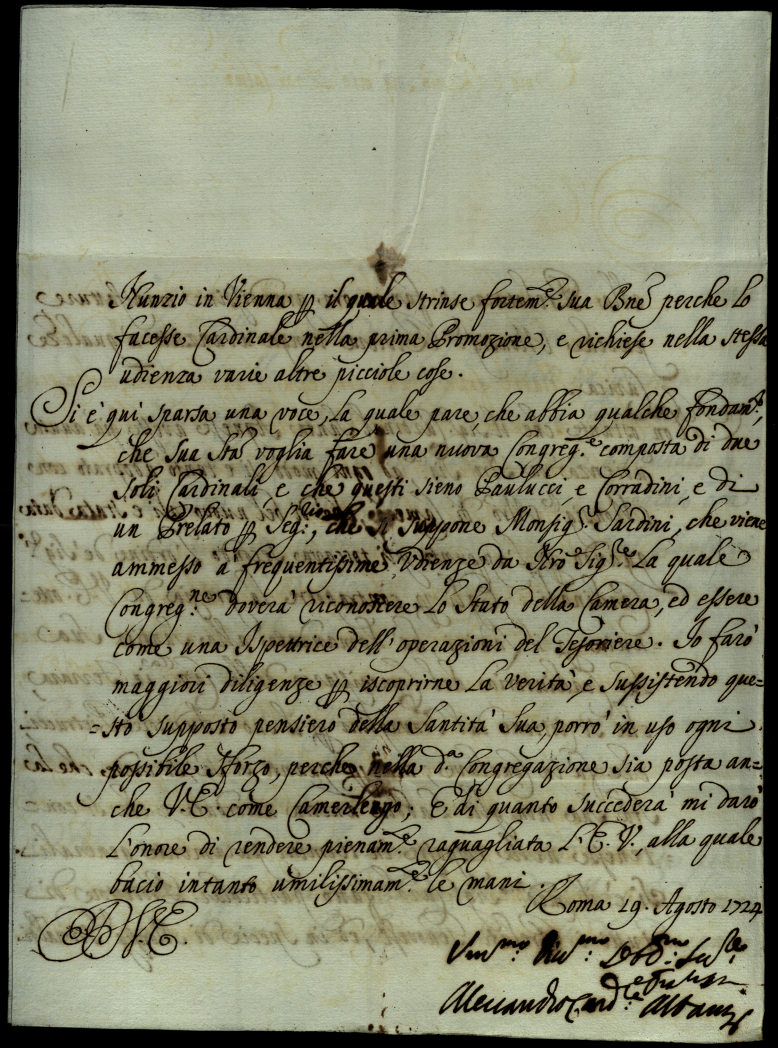 Nunzio in Vienna p il quale strinse fortem.e sua Bne perche lo
facesse Cardinale nella prima Promozione, e richiese nella stessa
udienza varie altre picciole cose.
Si è qui sparsa una voce, la quale pare, che abbia qualche fondam.to,
che sua Sta voglia fare una nuova Congreg.e composta di due
soli Cardinali e che questi sieno Paulucci, e Corradini, e di
un Prelato p Seg.rio, che si suppone Monsig.r Sardini, che viene
ammesso à frequentissime Udienze da Nro Sig.re La quale
Congreg.ne doverà riconoscere lo Stato della Camera, ed essere
come una Ispettrice dell'operazioni del Tesoriere. Io farò
maggiori diligenze p iscoprirne la verità, e sussistendo que=
=sto supposto pensiero della Santità Sua porrò in uso ogni
possibile sforzo, perche nella d.a Congregazione sia posta an=
che V.E. come Camerlengo; E di quanto succederà mi darò
l'onore di rendere pienam.e raguagliata l'E.V., alla quale
bacio intanto umilissimam.e le mani.
Roma 19. Agosto 1724
Alessandro Card.e Albani